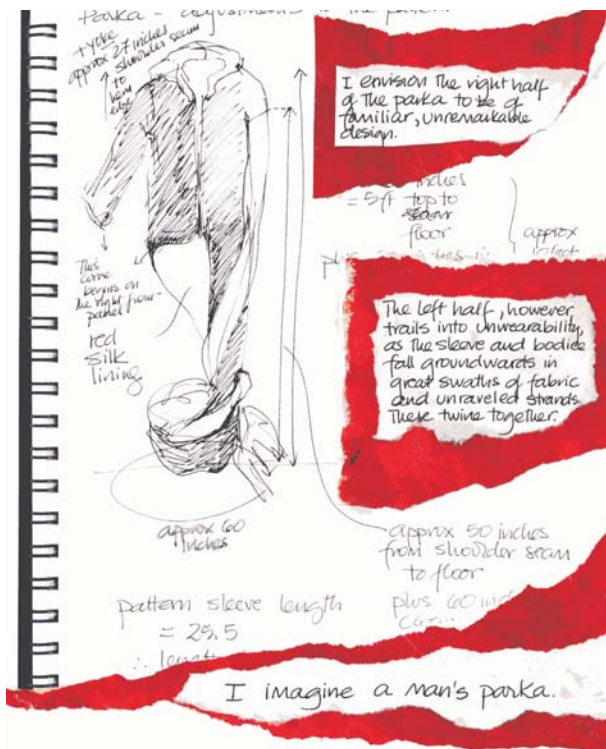 Parka - adjustments to the pattern
+ yoke
approx 27 inches
shoulder seam
to
hem
edge
I envision the right half
of the parka to be of
familiar, unremarkable
design.
inches
= 5ft top to
floor
approx
This
curve
begins on
the right front
panel
red
silk
lining
The left half, however
trails into unwearability,
as the sleeve and bodice
fall groundwards in
great swaths of fabric
and unraveled strands.
These twine together.
approx 60
inches
approx 50 inches
from shoulder seam
to floor
plus 60
pattern sleeve length
= 25.5
∴
I imagine a man's parka.